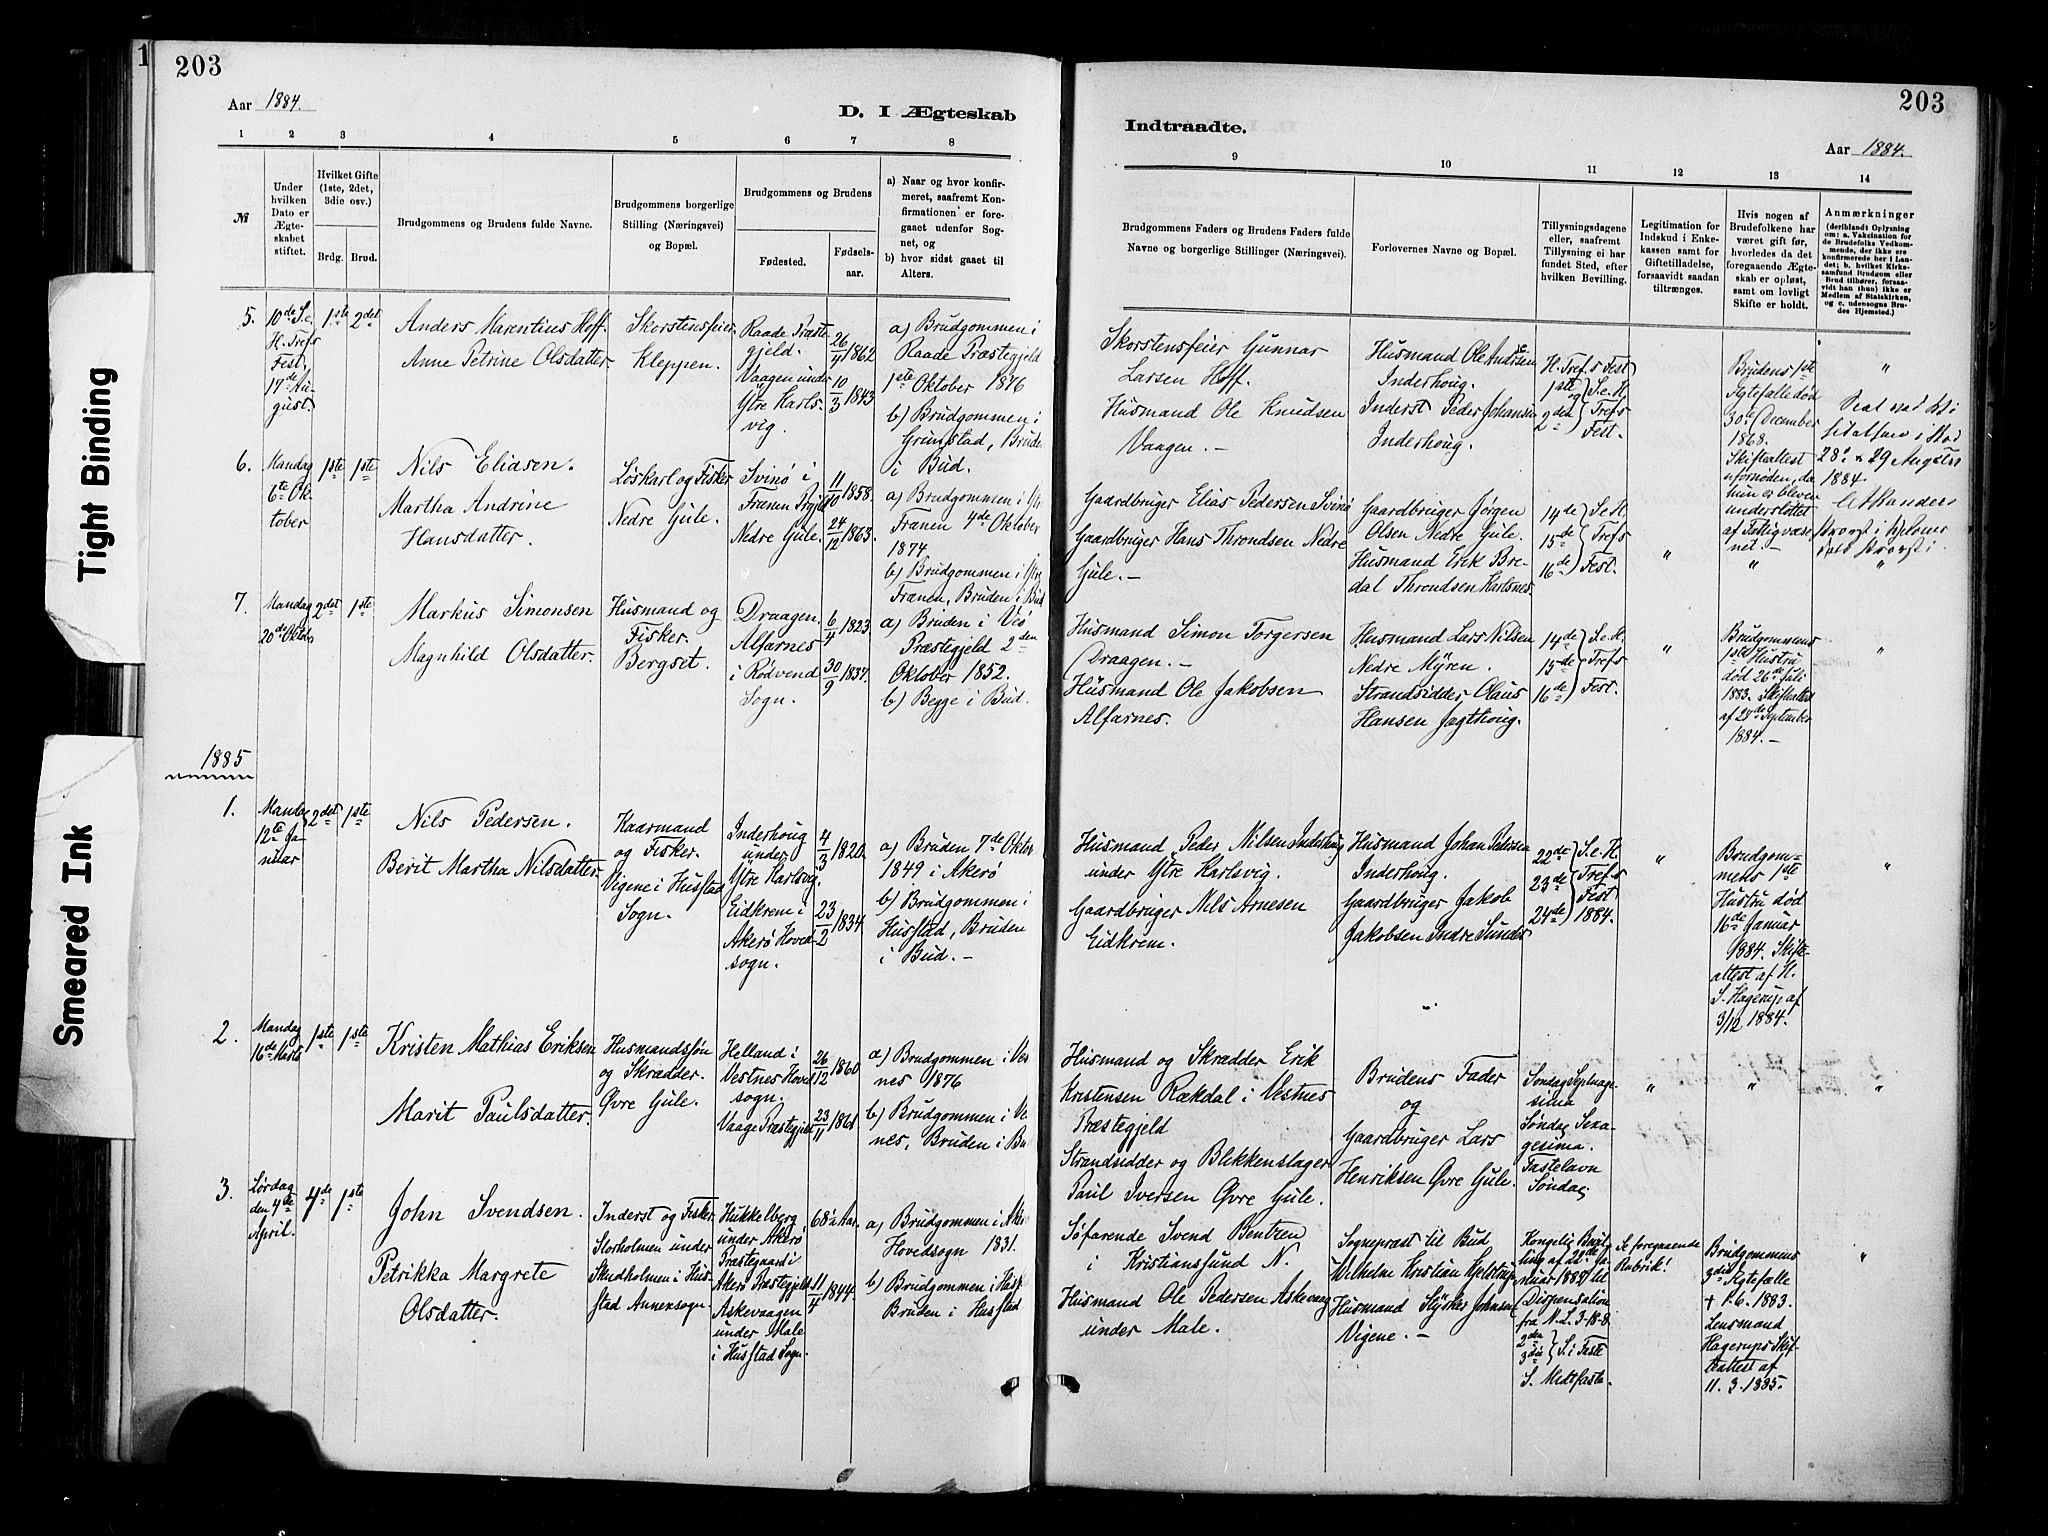 203
Aar 1884.
D. I Ægteskab
1 2 3 4 5 6 7 8
№
Under hvilken Dato er Ægteskabet stiftet.
Hvilket Gifte (1ste, 2det, 3die osv.)
Brdg. Brud.
Brudgommens og Brudens fulde Navne.
Brudgommens borgerlige Stilling (Næringsvei) og Bopæl.
Brudgommens og Brudens
Fødested.
Fødselsaar.
a) Naar og hvor konfirmeret, saafremt Konfirmationen er foregaaet udenfor Sognet, og
b) hvor sidst gaaet til Alters.
5.
10de S. e.
H. Tref's
Fest,
17de Au-
gust.
1ste 2det
Anders Marentius Hoff.
Anne Petrine Olsdatter.
Skorstensfeier
Kleppen.
Raade Præste
gjeld.
Vaagen under
Ytre Harls-
vig.
26/4 1862
10/3 1843
a) Brudgommen i
Raade Præstegjeld
1ste Oktober 1876
b) Brudgommen i
Grimstad, Bruden
i Bud.
6.
Mandag
6te Ok-
tober
1ste 1ste
Nils Eliasen.
Martha Andrine
Hansdatter.
Løskarl og Fisker
Nedre Gule.
Svinø i
Frænen Prgjld
Nedre Gule.
11/10 1858.
24/12 1863.
a) Brudgommen i
Frænen 4de Oktober
1874
b) Brudgommen i
Frænen, Bruden i Bud
7.
Mandag
20de Oktober
2det 1ste
Markus Simonsen
Magnhild Olsdatter.
Husmand og
Fisker.
Bergset.
Draagen.
Alfarnes
i Rødvend
Sogn.
6/4 1823.
30/9 1837.
a) Bruden i Veø
Præstegjeld 2den
Oktober 1852.
b) Begge i Bud.
1885
1.
Mandag
12te Ja-
nuar
2det 1ste
Nils Pedersen.
Berit Martha Nilsdatter
Kaarmand
og Fisker.
Vigene i Hustad
Sogn.
Inderhoug
under
Ytre Harlsvig.
Eidkrem i
Akerø Hoved-
sogn.
4/3 1820.
23/2 1834
a) Bruden 7de Oktober
1849 i Akerø
b) Brudgommen i
Hustad, Bruden
i Bud. -
2.
Mandag
16de Marts
1ste 1ste
Kristen Mathias Eriksen
Marit Paulsdatter.
Husmandssøn
og Skrædder.
Øvre Gule.
Helland i
Vestnes Hoved
sogn.
Vaage Præstegjeld
26/12 1860
23/11 1861
a) Brudgommen i Ves
nes 1876
b) Brudgommen i Ve
nes, Bruden i Bu
3.
Lørdag
den 4de
April.
4de 1ste
John Svendsen.
Petrikka Margrete
Olsdatter.
Inderst og Fisker.
Storholmen under
Skudholmen i Hus-
stad Annexsogn.
Hukkelberg
under Akerø
Præstegaard i
Akerø Præstegjeld
Askevaagen
under Male
i Hustad Sogn.
68 1/2 Aar.
11/4 1844
a) Brudgommen i Aker
Hovedsogn 1831.
b) Brudgommen i Hust
Bruden i Husstad
203
Indtraadte.
Aar 1884.
9 10 11 12 13 14
Brudgommens Faders og Brudens Faders fulde Navne og borgerlige Stillinger (Næringsvei).
Forlovernes Navne og Bopæl.
Tillysningsdagene eller, saafremt Tillysning ei har fundet Sted, efter hvilken Bevilling.
Legitimation for Indskud i Enkekassen samt for Giftetilladelse, forsaavidt saadan tiltrænges.
Hvis nogen af Brudefolkene har været gift før, hvorledes da det foregaaende Ægteskab er opløst, samt om lovligt Skifte er holdt.
Anmærkninger (deriblandt Oplysning om: a. Vakcination for de Brudefolks Vedkommende, der ikke ere konfirmerede her i Landet; b. hvilket Kirkesamfund Brudgom eller Brud tilhører, forsaavidt han (hun) ikke er Medlem af Statskirken, og c. udensogns Brudes Hjemsted.)
Skorstensfeier Gunnar
Larsen Hoff.
Husmand Ole Knudsen
Vaagen. -
Husmand Ole Andersen
Inderhoug.
Inderst Peder Johansen
Inderhoug.
H. Tref's Fest
1ste og 2den S. e. H. Tref's Fest.
Brudens 1ste
Ægtefælle død
30te December
1868.
Skifteattest
ufornøden, da
hun er bleven
understøttet
af Fattigvæse
net. -
"
28de & 29 August
1884.
Gaardbruger Elias Pedersen Svinø
Gaardbruger Hans Throndsen Nedre
Gule. -
Gaardbruger Jørgen
Olsen Nedre Gule.
Husmand Erik Bre-
dal Throndsen Harlsnes.
14de
15de
16de
S. e. H. Tref's Fest.
" " "
Husmand Simon Torgersen
Draagen. -
Husmand Ole Jakobsen
Alfarnes.
Husmand Lars Nilsen
Nedre Myren.
Strandsidder Olaus
Hansen Jagthoug.
14de
15de
16de
S. e. H. Tref's Fest.
"
Brudgommens
1ste Hustru
død 26de Juli
1883. Skifteattest
af 27de September
1884. -
"
Husmand Peder Nilsen Inderhoug
under Ytre Harlsvig.
Gaardbruger Nils Arnesen
Eidkrem.
Husmand Johan Pedersen
Inderhoug.
Gaardbruger Jakob
Jakobsen Indre Sunde
22de
23de
24de
S. e. H. Tref's Fest 1884.
"
Brudgom-
mens 1ste
Hustru død
16de Januar
1884. Skifte-
attest af H.
S. Hagerup af
3/12 1884.
"
Husmand og Skrædder Erik
Kristensen Rækdal i Vestnes
Præstegjeld
Strandsidder og Blikkenslager
Paul Iversen Øvre Gule.
Brudens Fader
og
Gaardbruger Lars
Henriksen Øvre Gule.
Søndag Septuage
sima
Søndag Sexa-
gesima.
Fastelavn
Søndag
" " "
Søfarende Svend Bentzen
i Kristiansund N.
Husmand Ole Pedersen Askevaag
under Male.
Sognepræst til Bud
Wilhelm Kristian
Husmand Styrker Johnsen
Vigene. -
Kongelig Bevil-
ling af 22de Ja-
nuar 1882 til
Dispensation
fra N. L. 3-18-8
2den
3die S. i Faste
S. Midtfaste.
Se foregaaende
Rubrik!
Brudgommens
3die Ægtefælle
+ 1.6.1883.
Lensmand
Hagerups Skif-
teattest af
11.3.1885.
"
Tight Binding
Smeared Ink